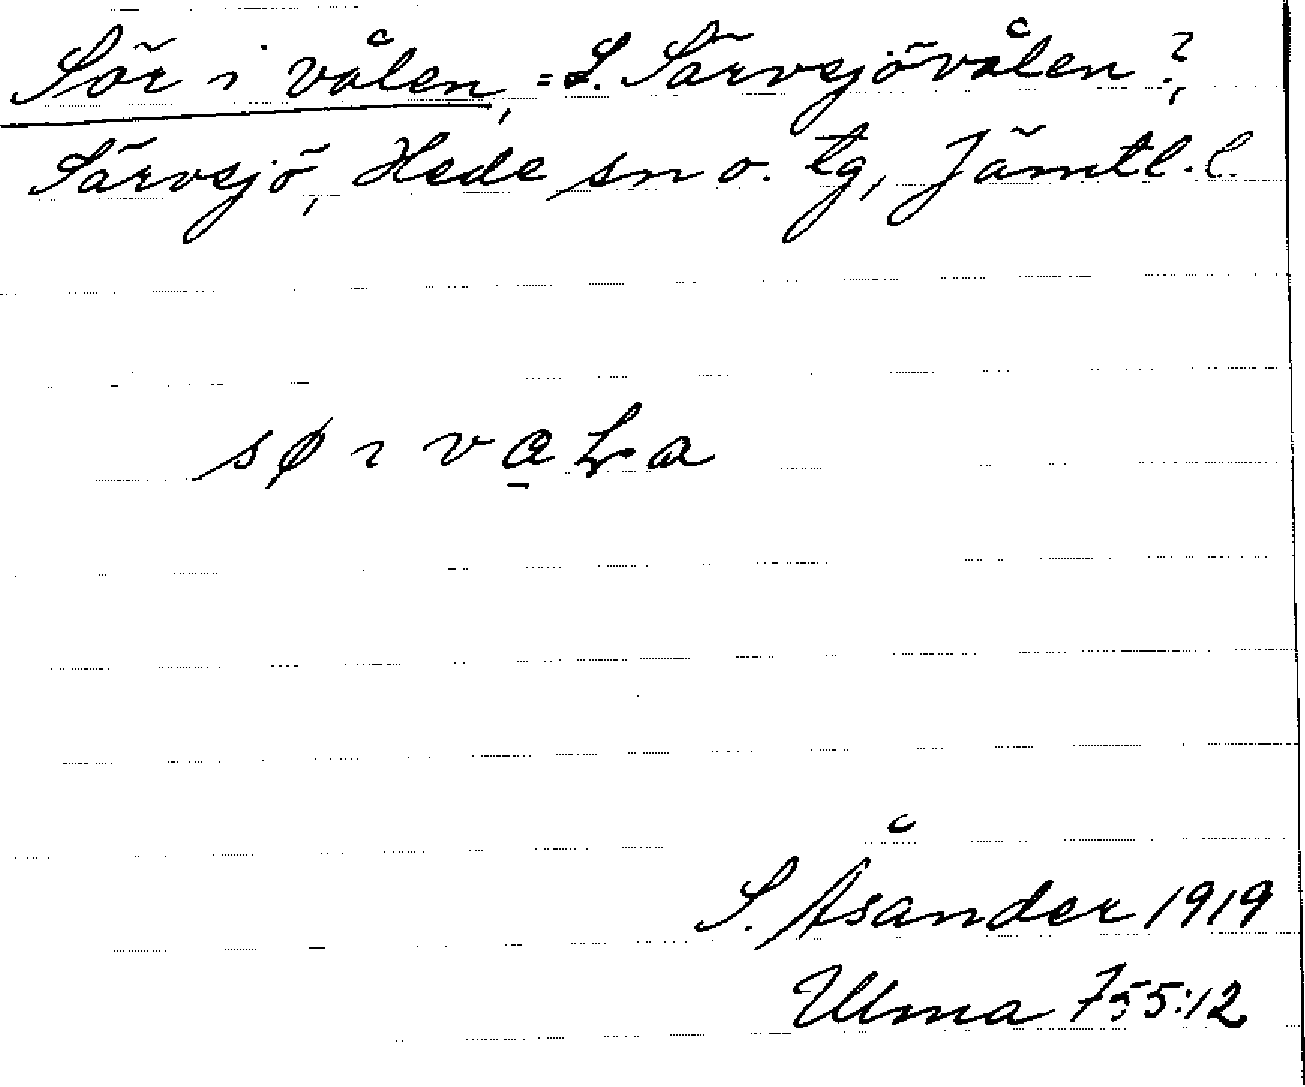 Sör i vålen, = S. Särvsjövålen?,
Särvsjö, Hede sn o. tg, Jämtl. l.
sø ı v
S. Åsander 1919
Ulma 755:12